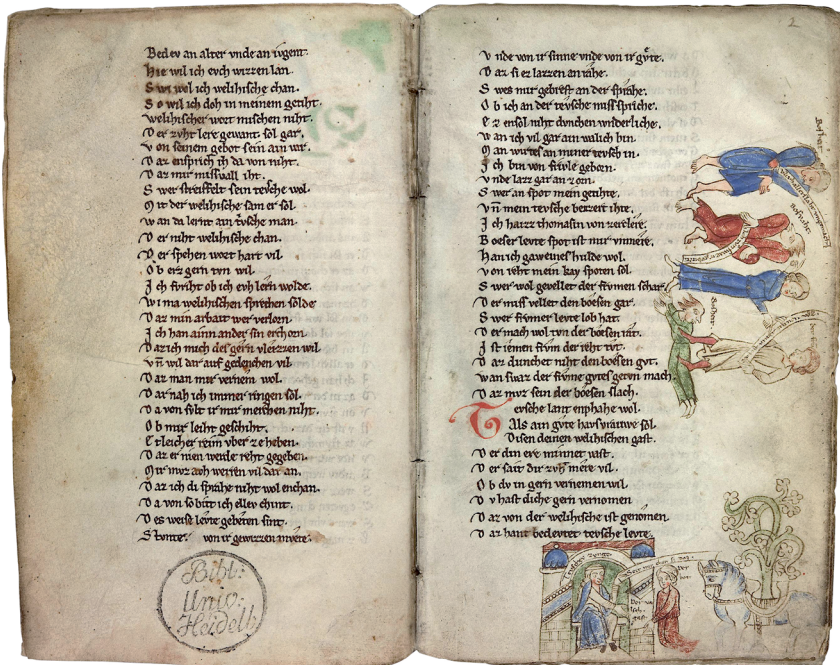 Bedev an alter vnde an ivgent.
Hie wil ich evch wizzen lan.
Swi wol ich welhische chan.
So wil ich doh in meinem getiht.
welhischer wort mischen niht.
Der zvht lere gewant sol gar.
von seinem gebot sein
Daz ensprich ih da von niht.
Daz mir missvall iht.
Swer streiffelt sein tevsche wol.
Mit der welhische sam er sol.
wan da lernt ain tvsche man.
Der niht welhische chan.
Der spehen wort hart vil.
Ob erz gern tvn wil.
Ich ob ich evh lern wolde.
wi ma welhischen sprechen solde
Daz min arbait wer verlorn.
Ich han ainn ander sin erchorn.
Daz ich mich des gern vleizzen wil
vn wil dar auf gedenchen vil.
Daz man mir vernem wol.
Dar nah ich immer ringen sol.
Da von solt ir mir merchen niht.
Ob mir leiht geschiht.
Etleicher reim vber ze heben.
Daz er nien werde reht gegeben.
Mir moz och werren vil dar an.
Daz ich di sprahe niht wol enchan.
Da von so bitt ich ellev chint.
Des weise levte gebeten sint.
von ir gewizzen
Bibl:
Univ:
Heidelb
2
vnde von ir sinne vnde von ir gvte.
Daz si ez lazzen an
Swes mir gebrest an der sprahe.
Ob ich an der tevsche misspriche.
Ez ensol niht dvnchen wnderliche.
wan ich vil gar ain walich bin.
Man wirtes an miner tevsch in.
Ich bin von frivle geborn.
vnde lazz gar an zorn.
Swer an spot mein getihte.
vn mein tevsche bezzert ihte.
Ich haizz thomasin von zerclere.
Boeser levte spot ist mir vnmere.
Han ich gaweines hulde wol.
von reht mein kay spoten sol.
Swer wol gevellet der frvmen schar.
Der missvellet den boesen gar.
Swer frvmer levte lob hat.
Der mach wol tvn der boesen rat.
Ist iemen frvm der reht tvt.
Daz dunchet niht den boesen gvt.
wan swaz der frvme gvtes getvn mach
Daz mvz sein der boesen slach.
Tevsche lant enphahe wol.
Als ain gvte havsvrauwe sol.
Disen deinen welhischen gast.
Der din ere minnet vast.
Der sait dir zvh mere vil.
Ob dv in gern vernemen wil.
Dv hast dicke gern vernomen
Daz von der welhische ist genomen
Daz hant bedevtet tevsche levte.